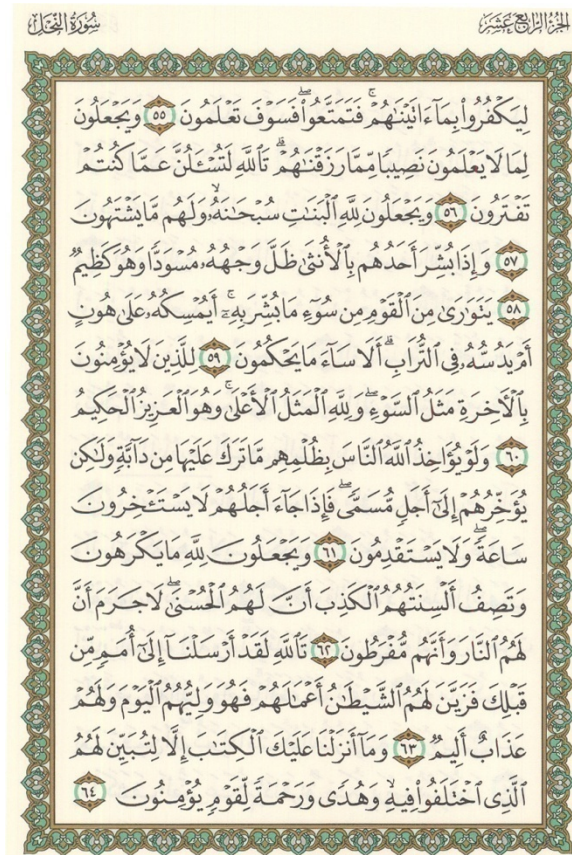 سُورَةُ النَّحْلِ
الجُزْءُ الرَّابِعَ عَشَرَ
لِيَكْفُرُوا۟ بِمَآ ءَاتَيْنَٰهُمْ ۚ فَتَمَتَّعُوا۟ ۖ فَسَوْفَ تَعْلَمُونَ ٥٥ وَيَجْعَلُونَ
لِمَا لَا يَعْلَمُونَ نَصِيبًا مِّمَّا رَزَقْنَٰهُمْ ۗ تَٱللَّهِ لَتُسْـَٔلُنَّ عَمَّا كُنتُمْ
تَفْتَرُونَ ٥٦ وَيَجْعَلُونَ لِلَّهِ ٱلْبَنَٰتِ سُبْحَٰنَهُۥ ۙ وَلَهُم مَّا يَشْتَهُونَ
٥٧ وَإِذَا بُشِّرَ أَحَدُهُم بِٱلْأُنثَىٰ ظَلَّ وَجْهُهُۥ مُسْوَدًّا وَهُوَ كَظِيمٌ
٥٨ يَتَوَٰرَىٰ مِنَ ٱلْقَوْمِ مِن سُوٓءِ مَا بُشِّرَ بِهِۦٓ ۚ أَيُمْسِكُهُۥ عَلَىٰ هُونٍ
أَمْ يَدُسُّهُۥ فِى ٱلتُّرَابِ ۗ أَلَا سَآءَ مَا يَحْكُمُونَ ٥٩ لِلَّذِينَ لَا يُؤْمِنُونَ
بِٱلْءَاخِرَةِ مَثَلُ ٱلسَّوْءِ ۖ وَلِلَّهِ ٱلْمَثَلُ ٱلْأَعْلَىٰ ۚ وَهُوَ ٱلْعَزِيزُ ٱلْحَكِيمُ
٦٠ وَلَوْ يُؤَاخِذُ ٱللَّهُ ٱلنَّاسَ بِظُلْمِهِم مَّا تَرَكَ عَلَيْهَا مِن دَآبَّةٍ وَلَٰكِن
يُؤَخِّرُهُمْ إِلَىٰٓ أَجَلٍ مُّسَمًّى ۖ فَإِذَا جَآءَ أَجَلُهُمْ لَا يَسْتَـْٔخِرُونَ
سَاعَةً ۖ وَلَا يَسْتَقْدِمُونَ ٦١ وَيَجْعَلُونَ لِلَّهِ مَا يَكْرَهُونَ
وَتَصِفُ أَلْسِنَتُهُمُ ٱلْكَذِبَ أَنَّ لَهُمُ ٱلْحُسْنَىٰ ۖ لَا جَرَمَ أَنَّ
لَهُمُ ٱلنَّارَ وَأَنَّهُم مُّفْرَطُونَ ٦٢ تَٱللَّهِ لَقَدْ أَرْسَلْنَآ إِلَىٰٓ أُمَمٍ مِّن
قَبْلِكَ فَزَيَّنَ لَهُمُ ٱلشَّيْطَٰنُ أَعْمَٰلَهُمْ فَهُوَ وَلِيُّهُمُ ٱلْيَوْمَ وَلَهُمْ
عَذَابٌ أَلِيمٌ ٦٣ وَمَآ أَنزَلْنَا عَلَيْكَ ٱلْكِتَٰبَ إِلَّا لِتُبَيِّنَ لَهُمُ
ٱلَّذِى ٱخْتَلَفُوا۟ فِيهِ ۙ وَهُدًى وَرَحْمَةً لِّقَوْمٍ يُؤْمِنُونَ ٦٤